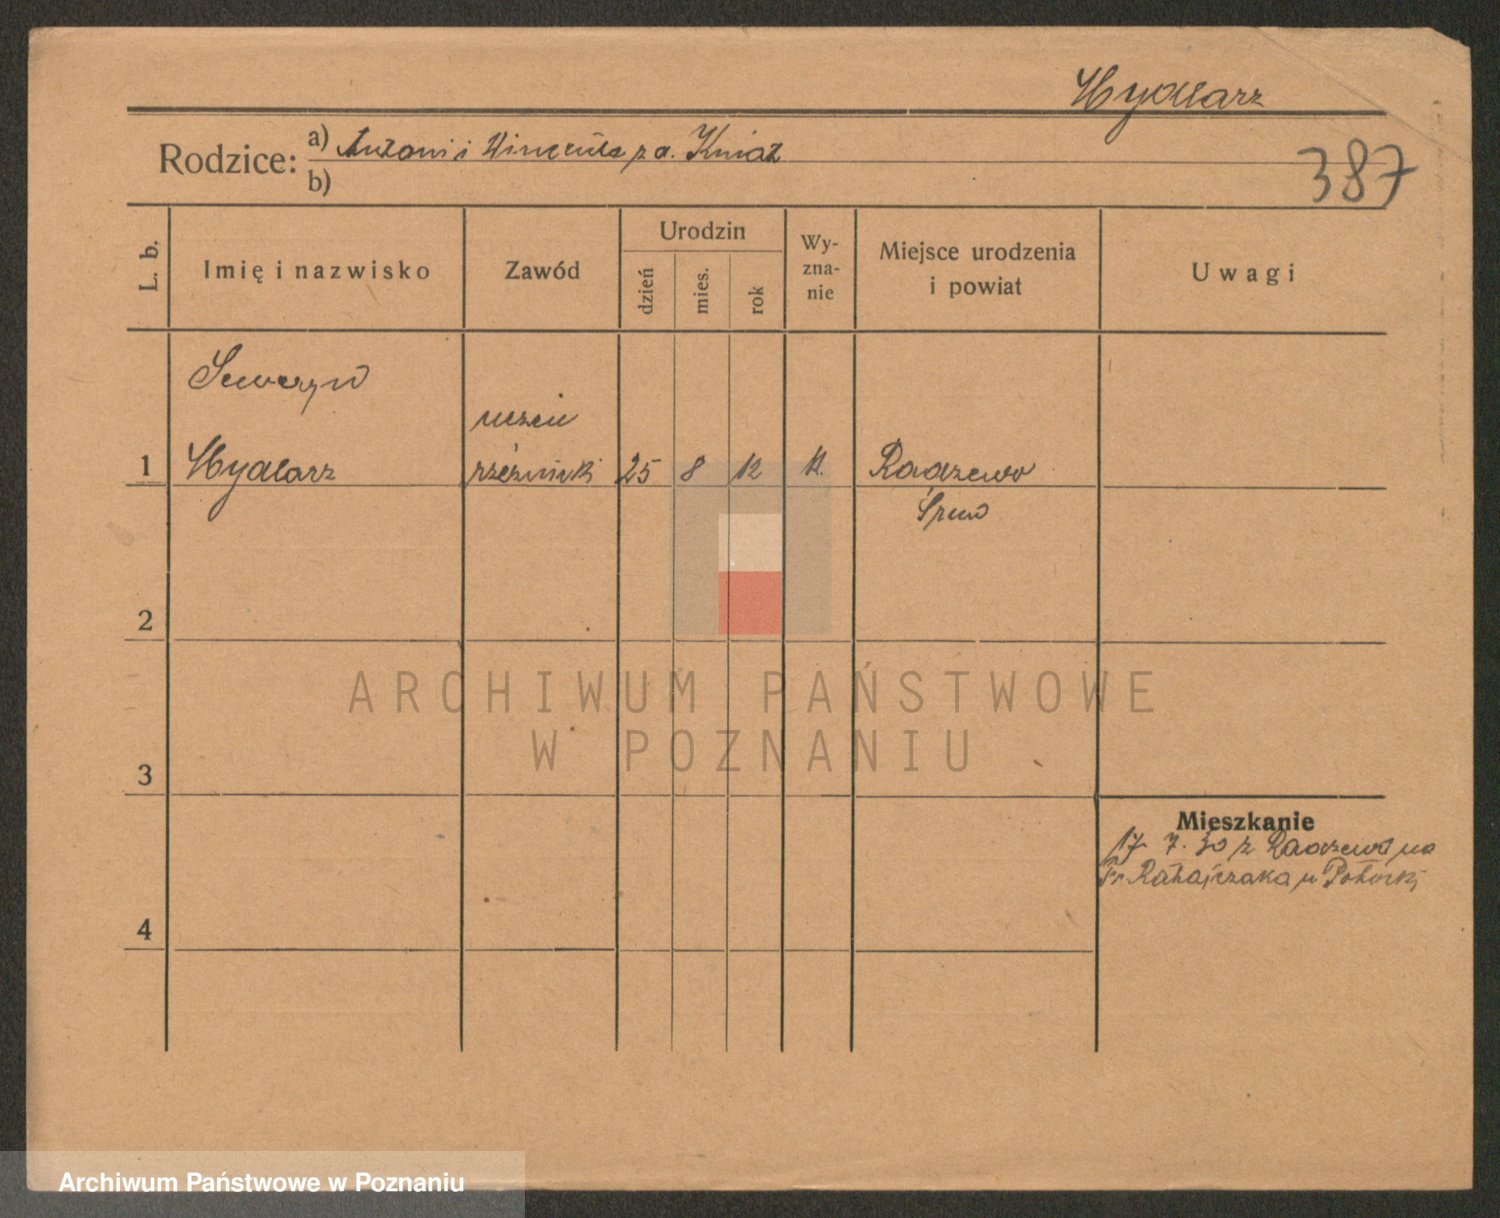 Hydlarz
Rodzice: a) Antoni i Wincenta z d. Kniat
b)
387
L. b.
Imię i nazwisko
Zawód
Urodzin
dzień
mies.
rok
Wy-
zna-
nie
Miejsce urodzenia
i powiat
Uwagi
Seweryn
uczeń
1 Hydlarz rzeźnicki 25 8 12 k. Radzewo
Śrem
2
3
4
Mieszkanie
17. 7. 30 z Radzewa na
Fr Ratajczaka u
ARCHIWUM PAŃSTWOWE
W POZNANIU
Archiwum Państwowe w Poznaniu